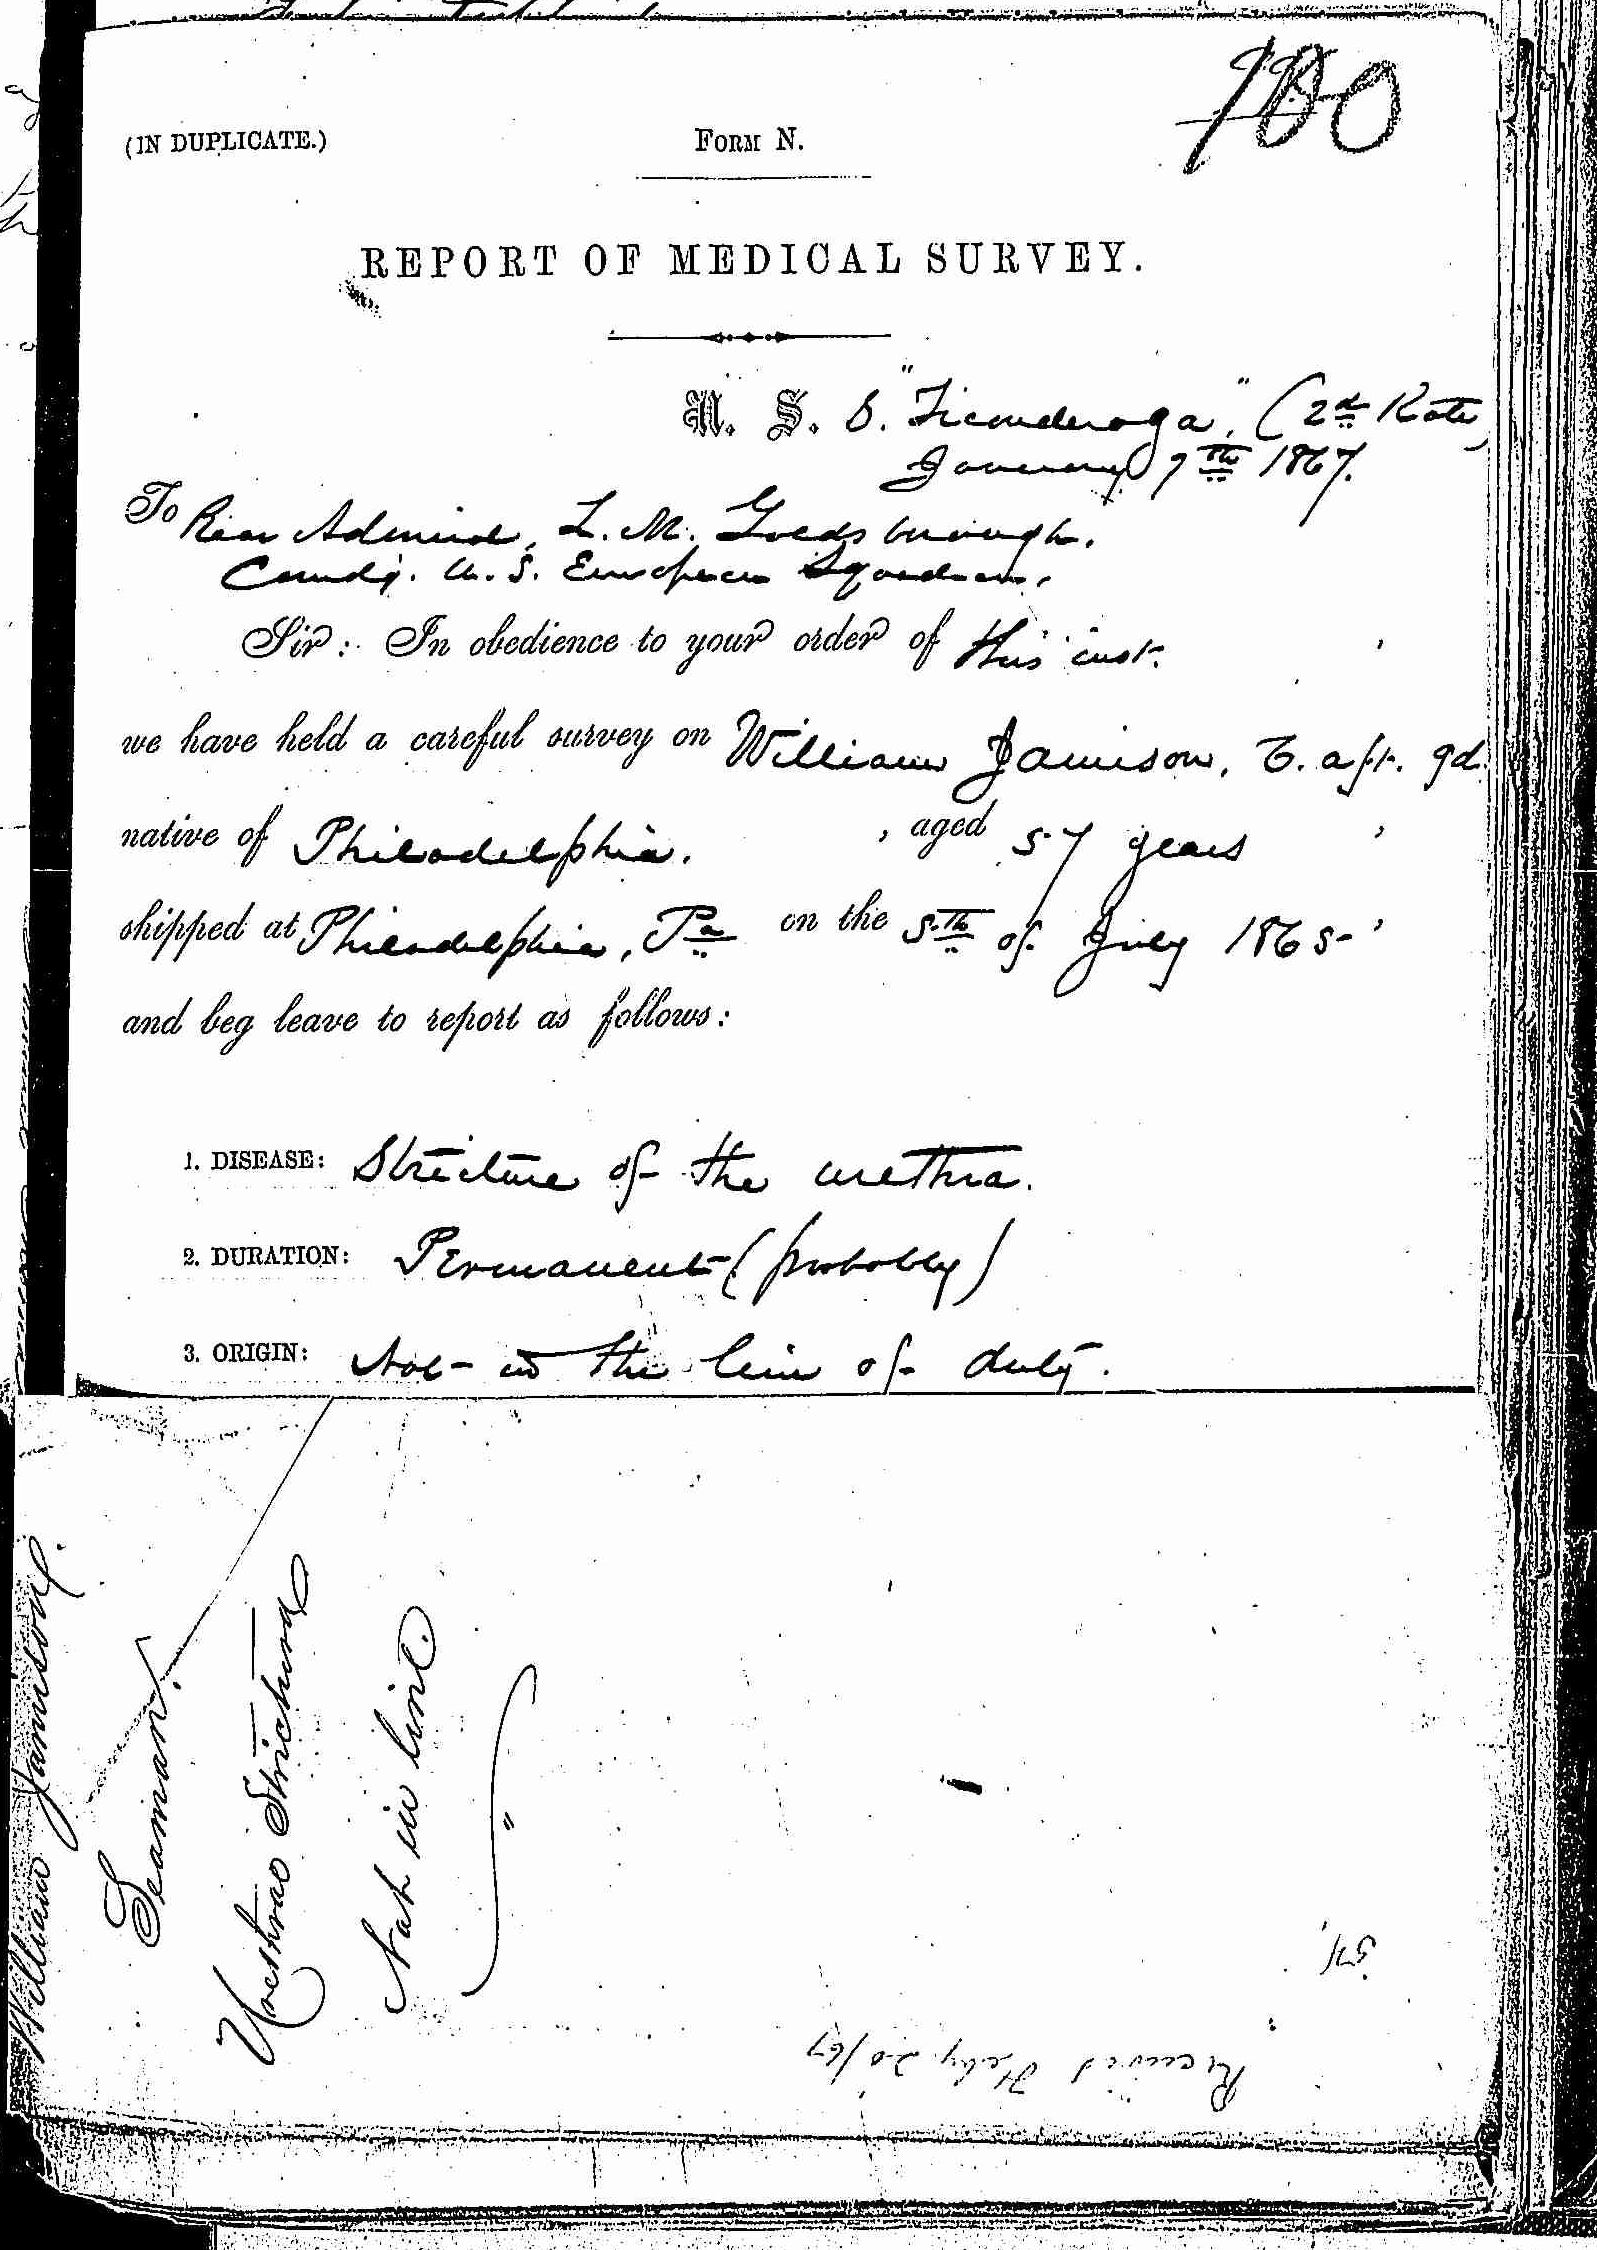 100
(IN DUPLICATE.)
FORM N.
REPORT OF MEDICAL SURVEY.
U. S. S. "Ticonderoga", (2d Rate)
January 7th 1867.
To Rear Admiral, L. M. Goldsborough.
Comdg. U. S. European Squadron,
Sir: In obedience to your order of this inst.
we have held a careful survey on William Jamison, C. aft. gd.
native of Philadelphia. , aged 57 years ,
shipped at Philadelphia, Pa on the 5th of July 1865 ,
and beg leave to report as follows:
1. DISEASE: Stricture of the urethra.
2. DURATION: Permanent (probably)
3. ORIGIN: Not in the line of duty.
William Jamison.
Seaman.
Urethral Stricture
Not in line.
Received Feby. 20/67